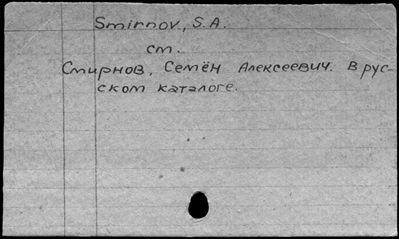 Smirnov, S.A.
см.
Смирнов, Семён Алексеевич. В рус-
ском каталоге.